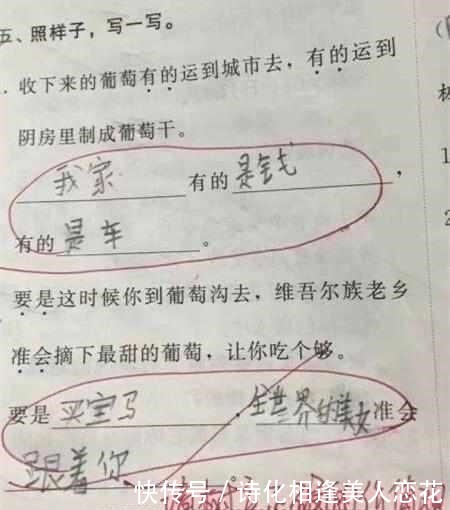 五、照样子，写一写。
收下来的葡萄有的运到城市去，有的运到
阴房里制成葡萄干。
我家有的是钱，
有的是车。
要是这时候你到葡萄沟去，维吾尔族老乡
准会摘下最甜的葡萄，让你吃个够。
要是买宝马，全世界的美女准会
跟着你
快传号／诗化相逢美人恋花